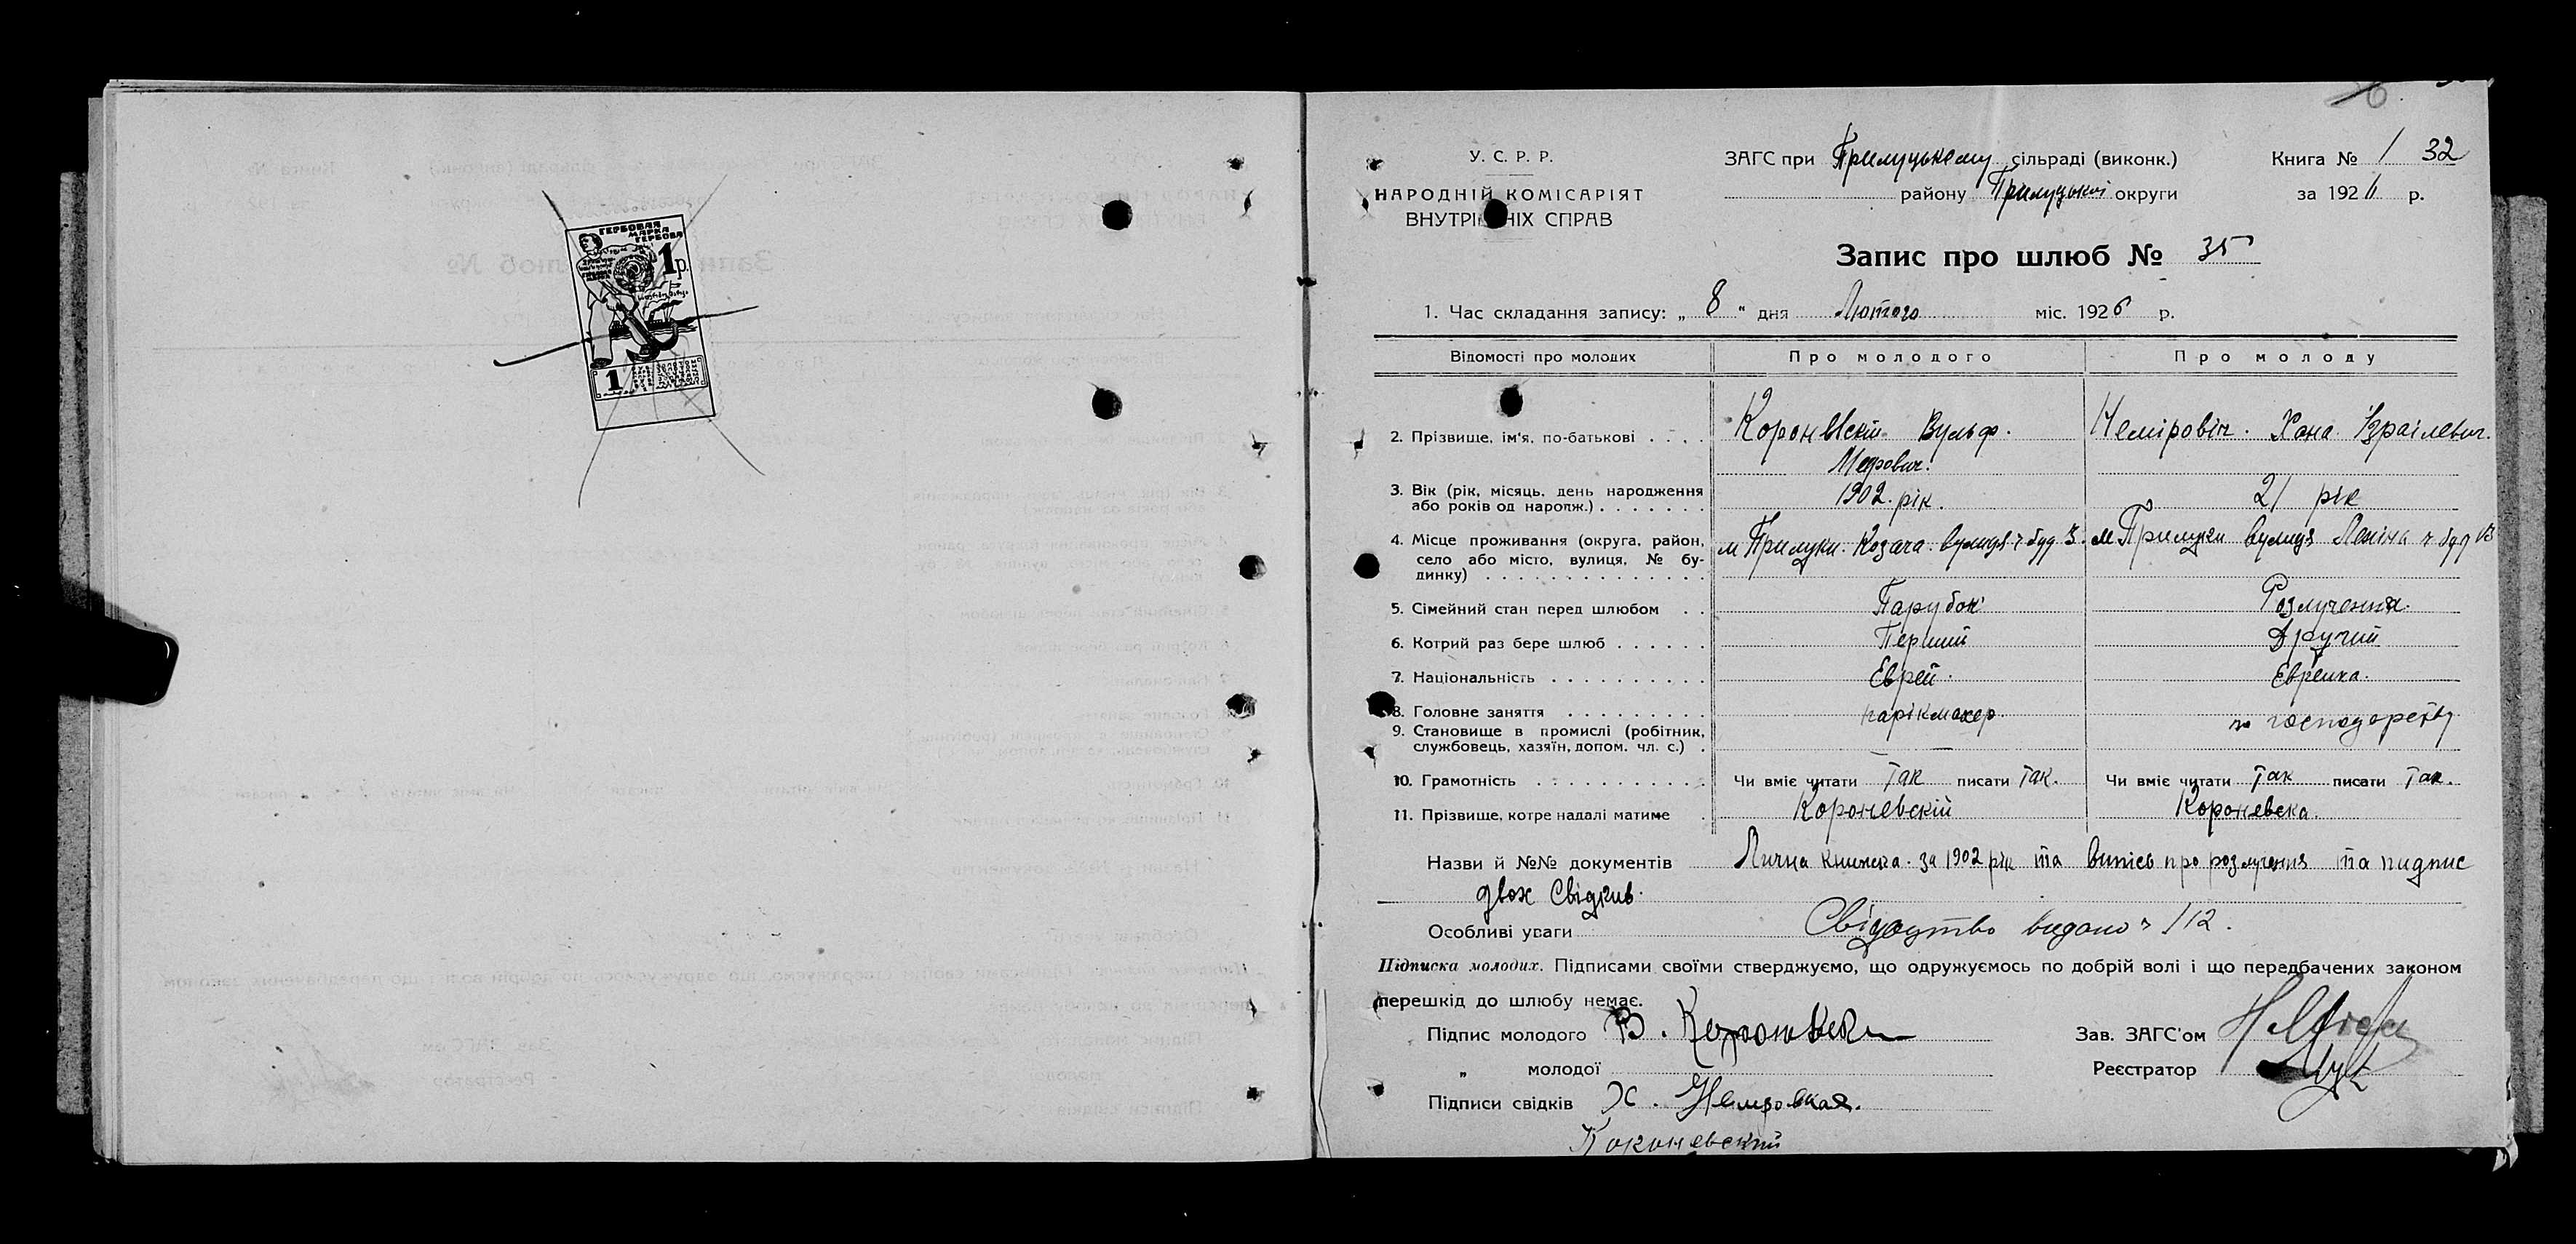 ГЕРБОВАЯ
МАРКА
ГЕРБОВА
1 р.
1
32
У. С. Р. Р.
НАРОДНІЙ КОМІСАРІЯТ
ВНУТРІШНІХ СПРАВ
ЗАГС при Прилуцькому сільраді (виконк.)
району Прилуцької округи
Книга № 1
за 1926 р.
Запис про шлюб № 35
1. Час складання запису: „ 8 “ дня Лютого міс. 1926 р.
Відомості про молодих Про молодого Про молоду
2. Прізвище, ім'я, по-батькові Короневскій Вульф. Неміровіч. Хана Ізраілевич.
Меерович.
3. Вік (рік, місяць, день народження 1902. рік. 21 рік
або років од нарожд.)
4. Місце проживання (округа, район, м Прилуки. Козача. вулиця ч буд 3. м Прилуки вулиця Леніна ч буд
село або місто, вулиця, № бу-
динку)
5. Сімейний стан перед шлюбом Парубок Розлученна.
6. Котрий раз бере шлюб Перший Другий
7. Національність Еврей. Еврейка.
8. Головне заняття парікмахер. по господарству
9. Становище в промислі (робітник,
службовець, хазяїн, допом. чл. с.)
10. Грамотність Чи вміє читати Так писати Так. Чи вміє читати Так писати Так.
11. Прізвище, котре надалі матиме Короневскій Короневска.
Назви й №№ документів Лична книжка за 1902 рік та випись про розлучення та пидпис
двох Свідків.
Особливі уваги Свідоцтво видано ч 112.
Підписка молодих. Підписами своїми стверджуємо, що одружуємось по добрій волі і що передбачених законом
перешкід до шлюбу немає.
Підпис молодого В. Зав. ЗАГС'ом
„ молодої Реєстратор
Підписи свідків Х.
Короневский